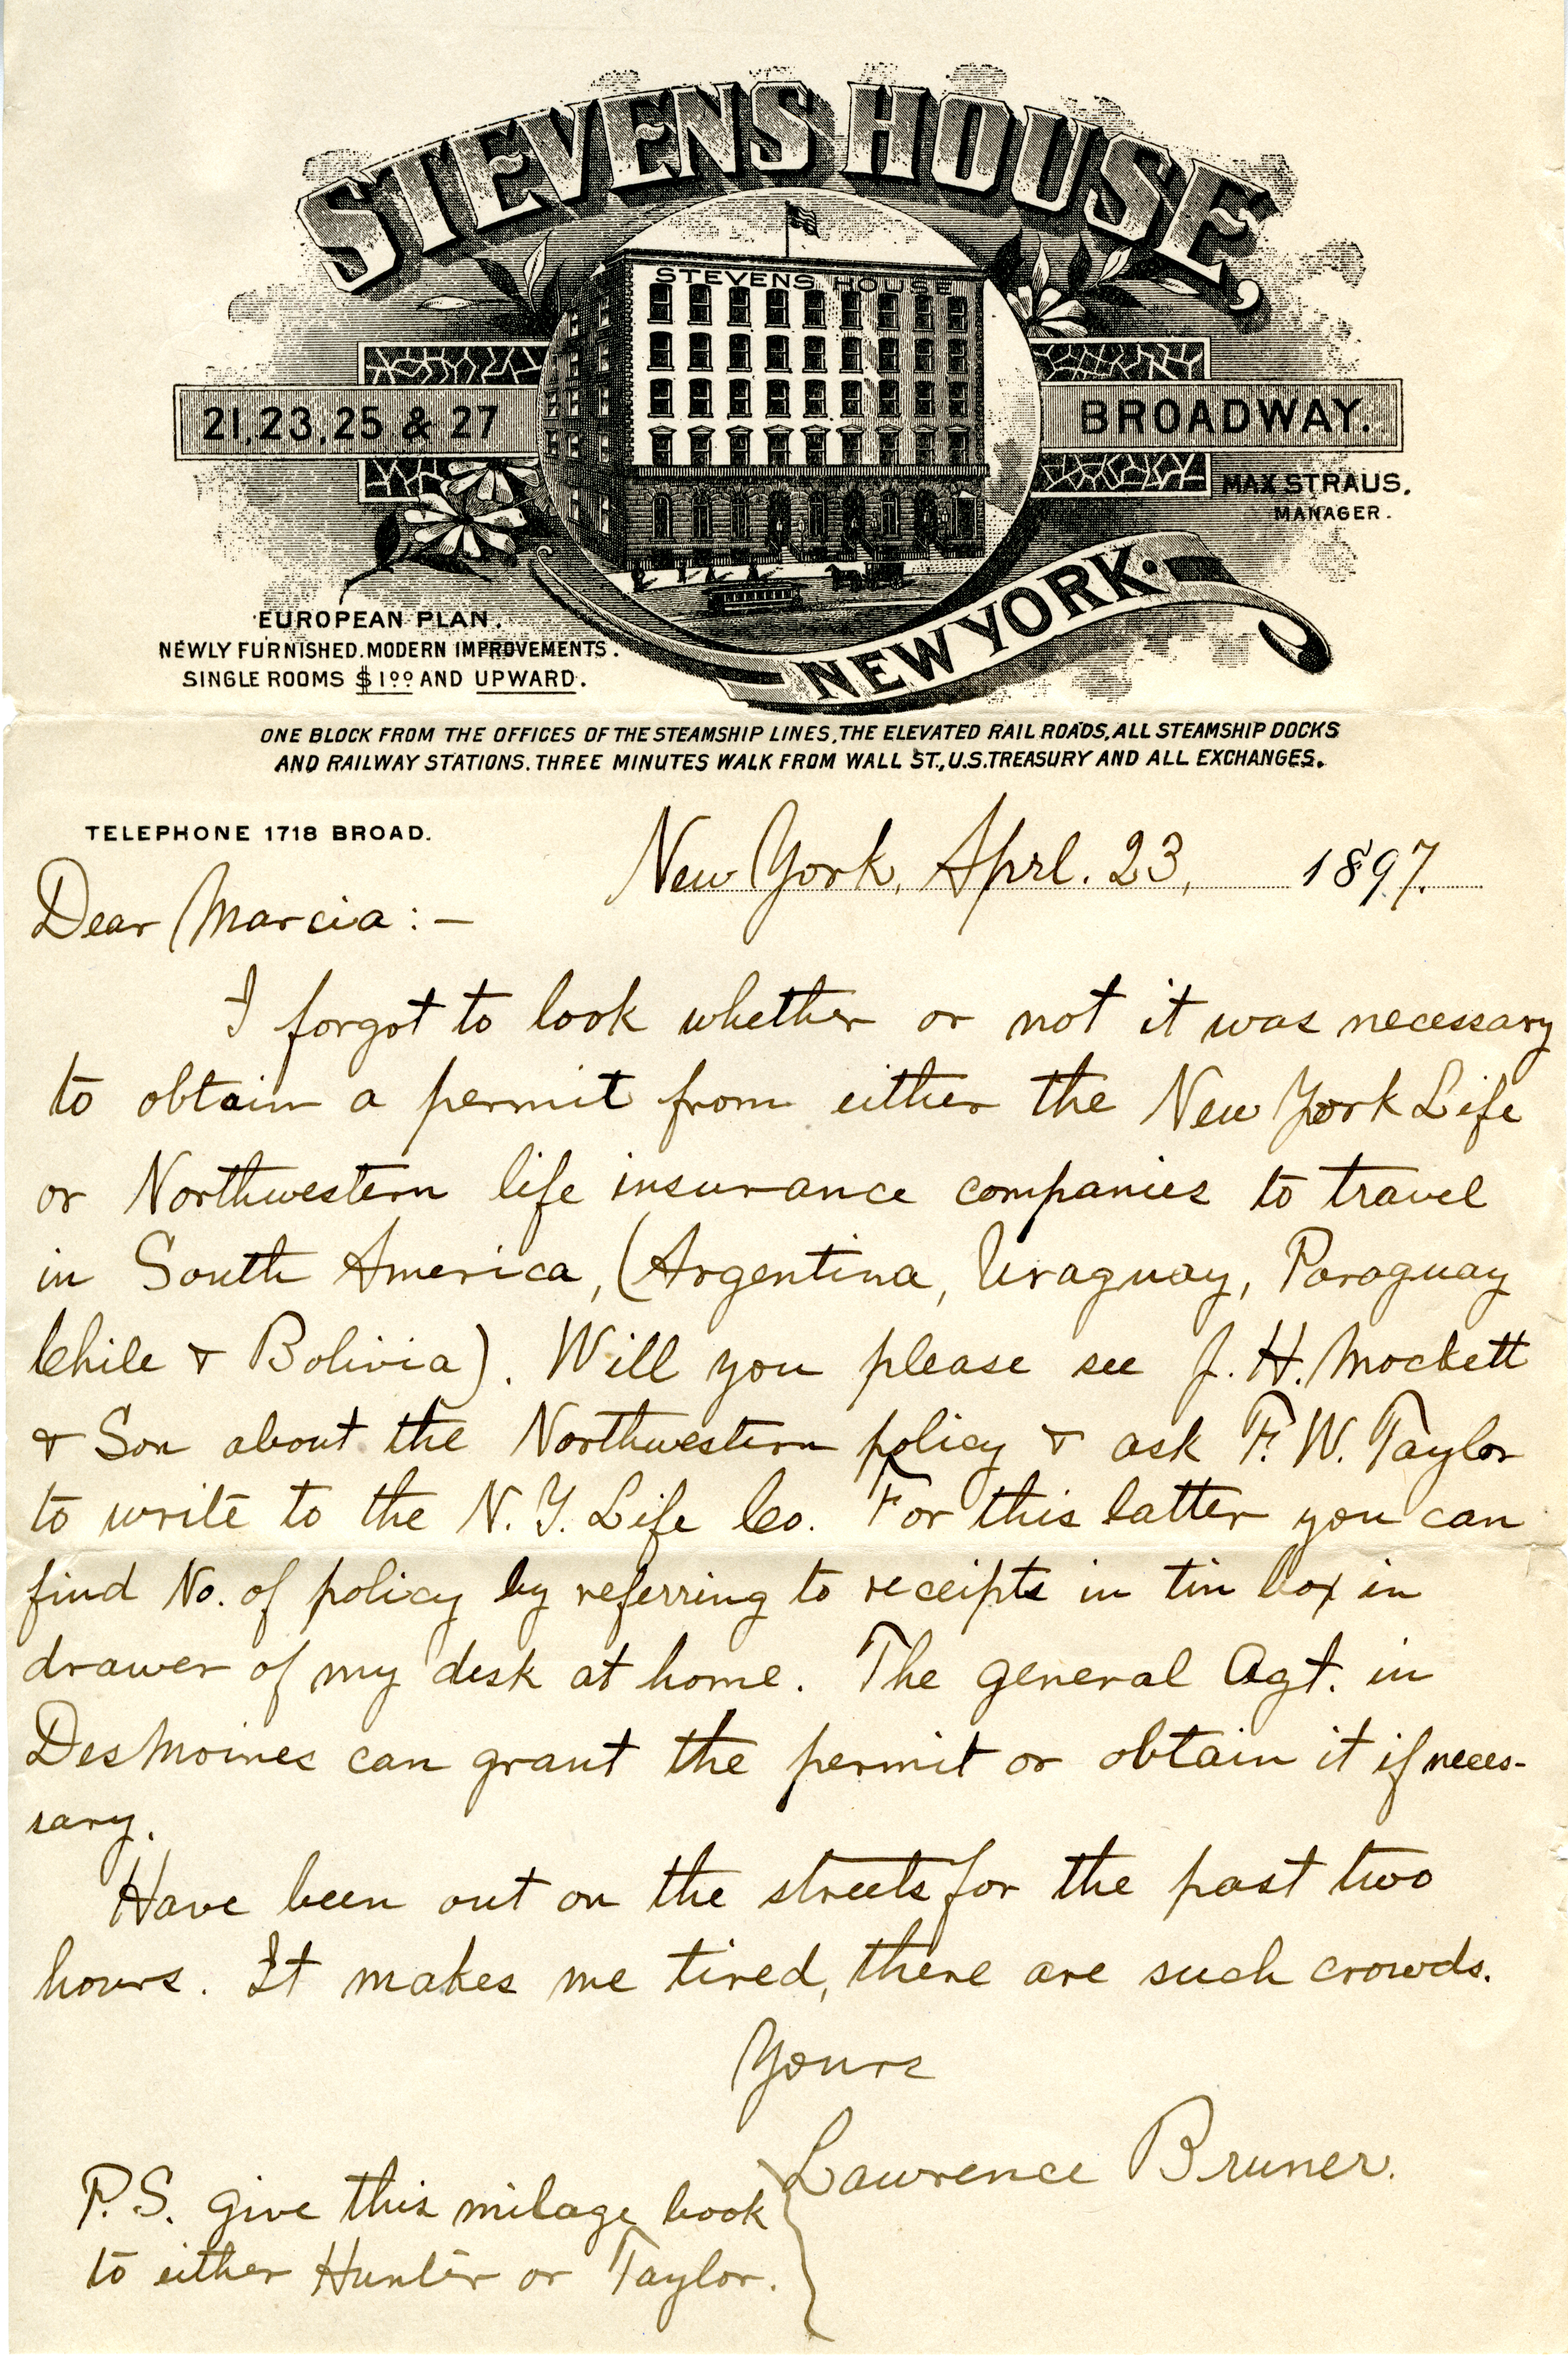 STEVENS HOUSE,
STEVENS HOUSE
21, 23, 25 & 27
BROADWAY.
MAX STRAUS.
MANAGER.
NEW YORK.
EUROPEAN PLAN.
NEWLY FURNISHED. MODERN IMPROVEMENTS.
SINGLE ROOMS $1.00 AND UPWARD.
ONE BLOCK FROM THE OFFICES OF THE STEAMSHIP LINES, THE ELEVATED RAIL ROADS, ALL STEAMSHIP DOCKS
AND RAILWAY STATIONS. THREE MINUTES WALK FROM WALL ST., U.S. TREASURY AND ALL EXCHANGES.
TELEPHONE 1718 BROAD.
New York, Aprl. 23, 1897.
Dear Marcia:—
I forgot to look whether or not it was necessary
to obtain a permit from either the New York Life
or Northwestern life insurance companies to travel
in South America, (Argentina, Uraguay, Paraguay
Chile & Bolivia). Will you please see J. H. Mockett
& Son about the Northwestern policy & ask F. W. Taylor
to write to the N. Y. Life Co. For this latter you can
find No. of policy by referring to receipts in tin box in
drawer of my desk at home. The general Agt. in
DesMoines can grant the permit or obtain it if neces-
sary.
Have been out on the streets for the past two
hours. It makes me tired, there are such crowds.
Yours
Lawrence Bruner.
P.S. give this milage book
to either Hunter or Taylor.